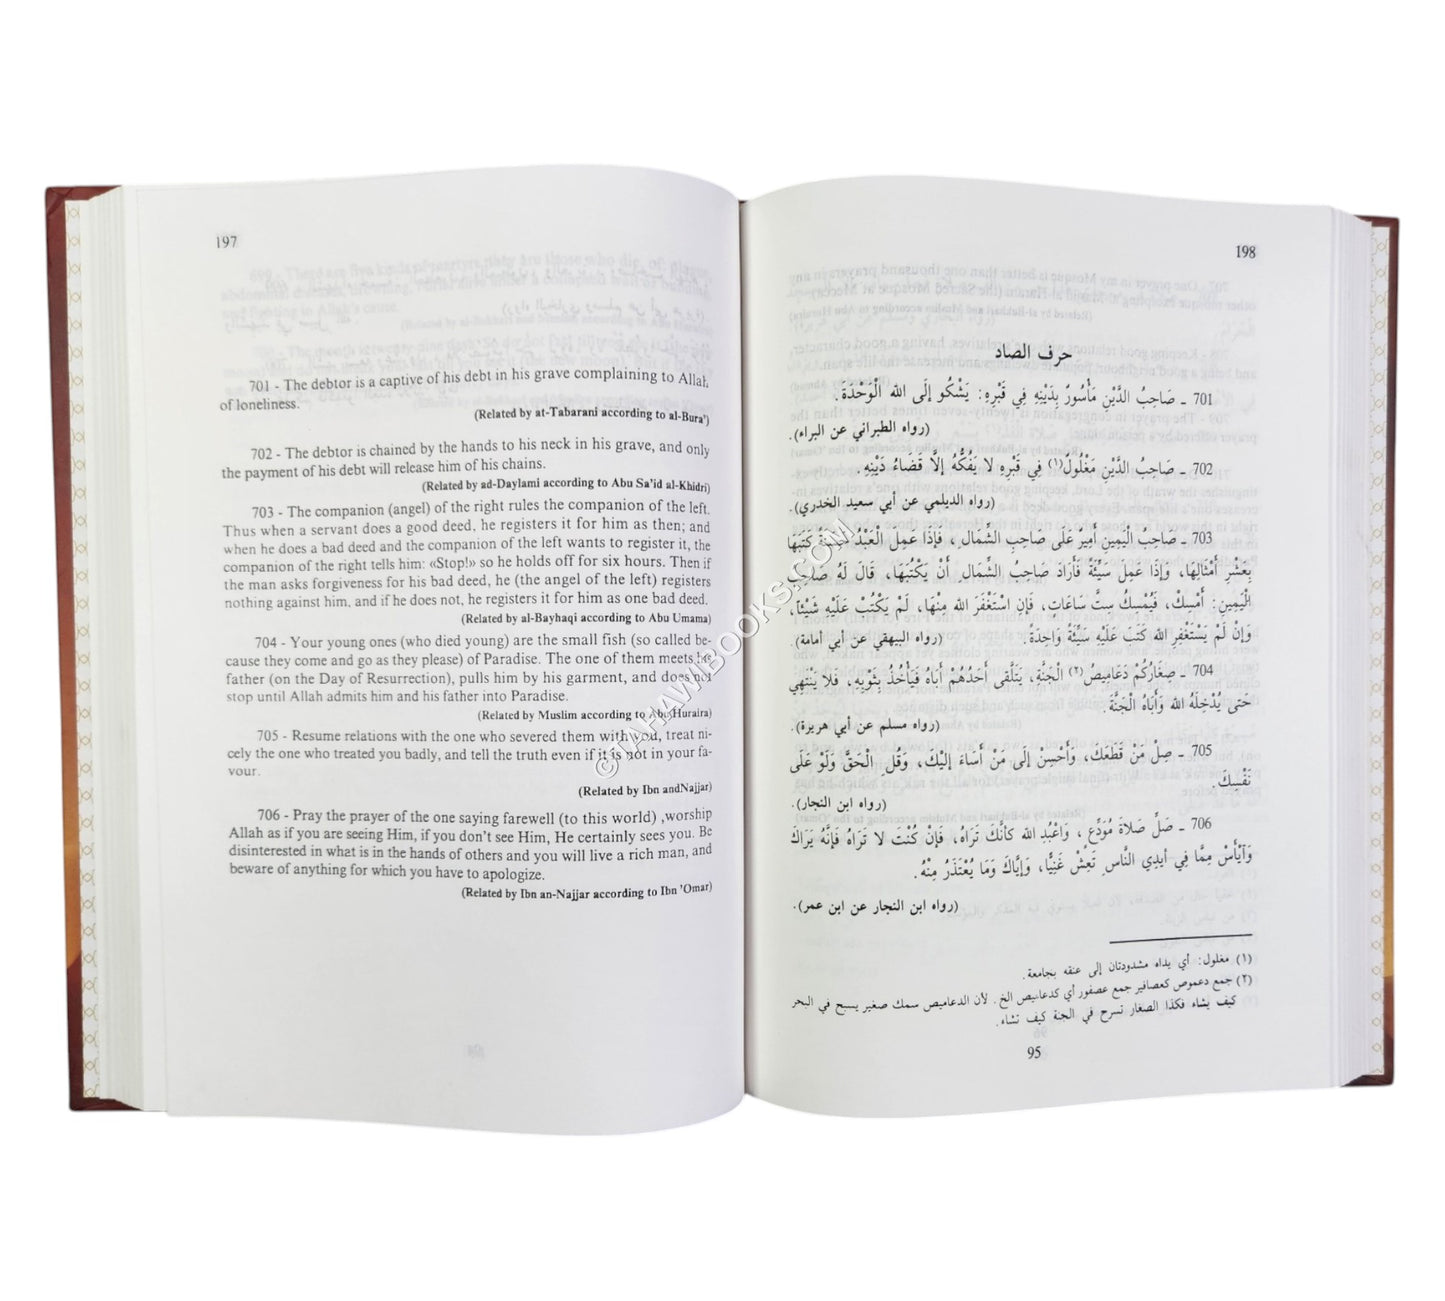 197
701 - The debtor is a captive of his debt in his grave complaining to Allah
of loneliness.
(Related by at-Tabarani according to al-Bura’)
702 - The debtor is chained by the hands to his neck in his grave, and only
the payment of his debt will release him of his chains.
(Related by ad-Daylami according to Abu Sa’id al-Khidri)
703 - The companion (angel) of the right rules the companion of the left.
Thus when a servant does a good deed, he registers it for him as then; and
when he does a bad deed and the companion of the left wants to register it, the
companion of the right tells him: «Stop!» so he holds off for six hours. Then if
the man asks forgiveness for his bad deed, he (the angel of the left) registers
nothing against him, and if he does not, he registers it for him as one bad deed.
(Related by al-Bayhaqi according to Abu Umama)
704 - Your young ones (who died young) are the small fish (so called be-
cause they come and go as they please) of Paradise. The one of them meets his
father (on the Day of Resurrection), pulls him by his garment, and does not
stop until Allah admits him and his father into Paradise.
(Related by Muslim according to Abu Huraira)
705 - Resume relations with the one who severed them with you, treat ni-
cely the one who treated you badly, and tell the truth even if it is not in your fa-
vour.
(Related by Ibn andNajjar)
706 - Pray the prayer of the one saying farewell (to this world) ,worship
Allah as if you are seeing Him, if you don’t see Him, He certainly sees you. Be
disinterested in what is in the hands of others and you will live a rich man, and
beware of anything for which you have to apologize.
(Related by Ibn an-Najjar according to Ibn ’Omar)
198
حرف الصاد
701 ـ صَاحِبُ الدَّيْنِ مَأْسُورٌ بِدَيْنِهِ فِي قَبْرِهِ: يَشْكُو إلَى الله الْوَحْدَةَ.
(رواه الطبراني عن البراء).
702 ـ صَاحِبُ الدَّيْنِ مَغْلُولٌ(١) فِي قَبْرِهِ لا يَفُكُّهُ إلَّا قَضَاءُ دَيْنِهِ.
(رواه الديلمي عن أبي سعيد الخدري).
703 ـ صَاحِبُ الْيَمِينِ أَمِيرٌ عَلَى صَاحِبِ الشِّمَالِ، فَإذَا عَمِلَ الْعَبْدُ حَسَنَةً كَتَبَهَا
بِعَشْرِ أَمْثَالِهَا، وَإذَا عَمِلَ سَيِّئَةً فَأَرَادَ صَاحِبُ الشِّمَالِ أَنْ يَكْتُبَهَا، قَالَ لَهُ صَاحِبُ
الْيَمِينِ: أَمْسِكْ، فَيُمْسِكُ سِتَّ سَاعَاتٍ، فَإنِ اسْتَغْفَرَ الله مِنْهَا، لَمْ يَكْتُبْ عَلَيْهِ شَيْئاً،
وَإنْ لَمْ يَسْتَغْفِرِ الله كَتَبَ عَلَيْهِ سَيِّئَةً وَاحِدَةً. (رواه البيهقي عن أبي أمامة).
704 ـ صِغَارُكُمْ دَعَامِيصُ(٢) الْجَنَّةِ، يَتَلَقَّى أَحَدُهُمْ أَبَاهُ فَيَأْخُذُ بِثَوْبِهِ، فَلا يَنْتَهِي
حَتى يُدْخِلَهُ الله وَأَبَاهُ الْجَنَّةَ.
(رواه مسلم عن أبي هريرة).
705 ـ صِلْ مَنْ قَطَعَكَ، وَأَحْسِنْ إلَى مَنْ أَسَاءَ إلَيْكَ، وَقُلِ الْحَقَّ وَلَوْ عَلَى
نَفْسِكَ.
(رواه ابن النجار).
706 ـ صَلِّ صَلاةَ مُوَدِّعٍ، وَاعْبُدِ الله كَأَنَّكَ تَرَاهُ، فَإنْ كُنْتَ لا تَرَاهُ فَإنَّهُ يَرَاكَ
وَآيْأَسْ مِمَّا فِي أيدِي النَّاسِ تَعِشْ غَنِيًّا، وَإيَّاكَ وَمَا يُعْتَذَرُ مِنْهُ.
(رواه ابن النجار عن ابن عمر).
(١) مغلول: أي يداه مشدودتان إلى عنقه بجامعة.
(٢) جمع دعموص كعصافير جمع عصفور أي كدعاميص الخ. لأن الدعاميص سمك صغير يسبح في البحر
كيف يشاء فكذا الصغار تسرح في الجنة كيف تشاء.
95
© TAHAWIBOOKS.COM